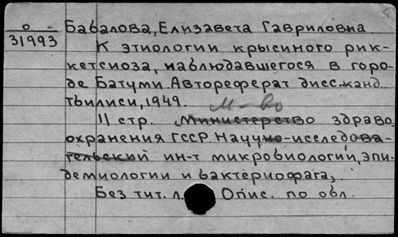 о Бабалова, Елизавета Гавриловна
31993
К этиологии крысиного рик-
кетсиоза, наблюдавшегося в горо-
де Батуми. Автореферат дисс. канд.
Тбилиси, 1949.
М-во
11 стр. Министерство здраво-
охранения ГССР. Научно-исследова-
тельский ин-т микробиологии, эпи-
демиологии и бактериофага,
Без тит. л. Опис. по обл.